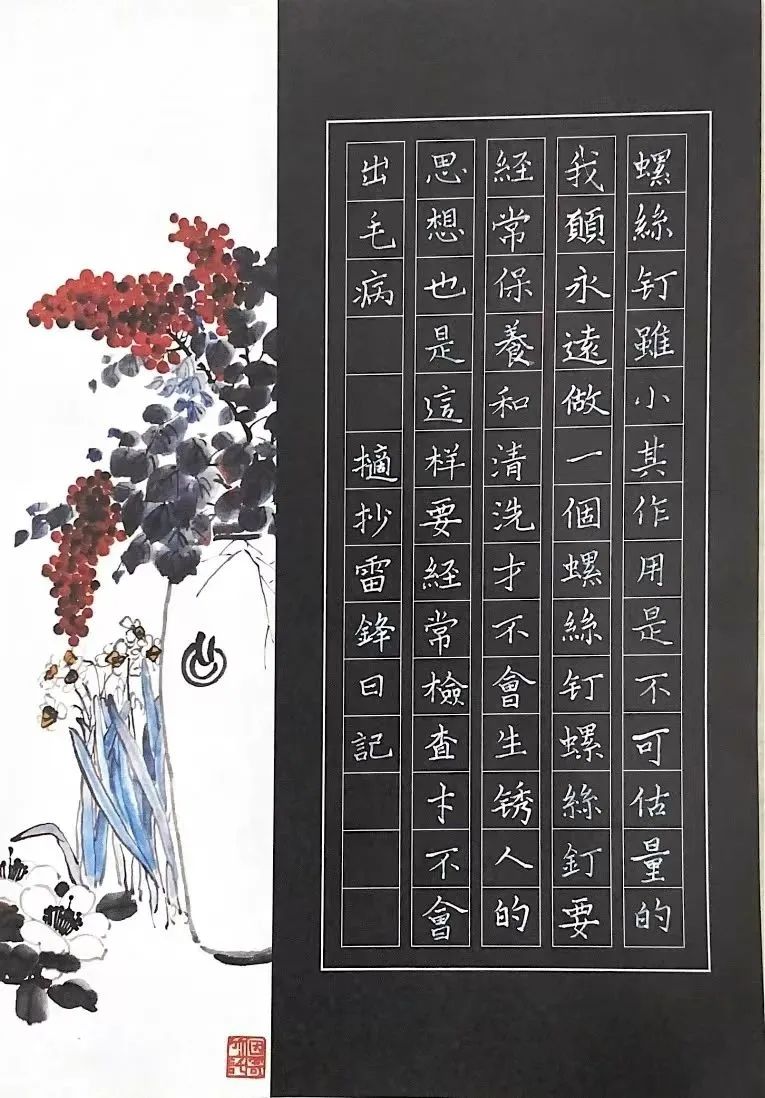 螺絲钉雖小其作用是不可估量的
我願永遠做一個螺絲钉螺絲釘要
経常保養和清洗才不會生锈人的
思想也是這样要経常檢查才不會
出毛病 摘抄雷鋒日記